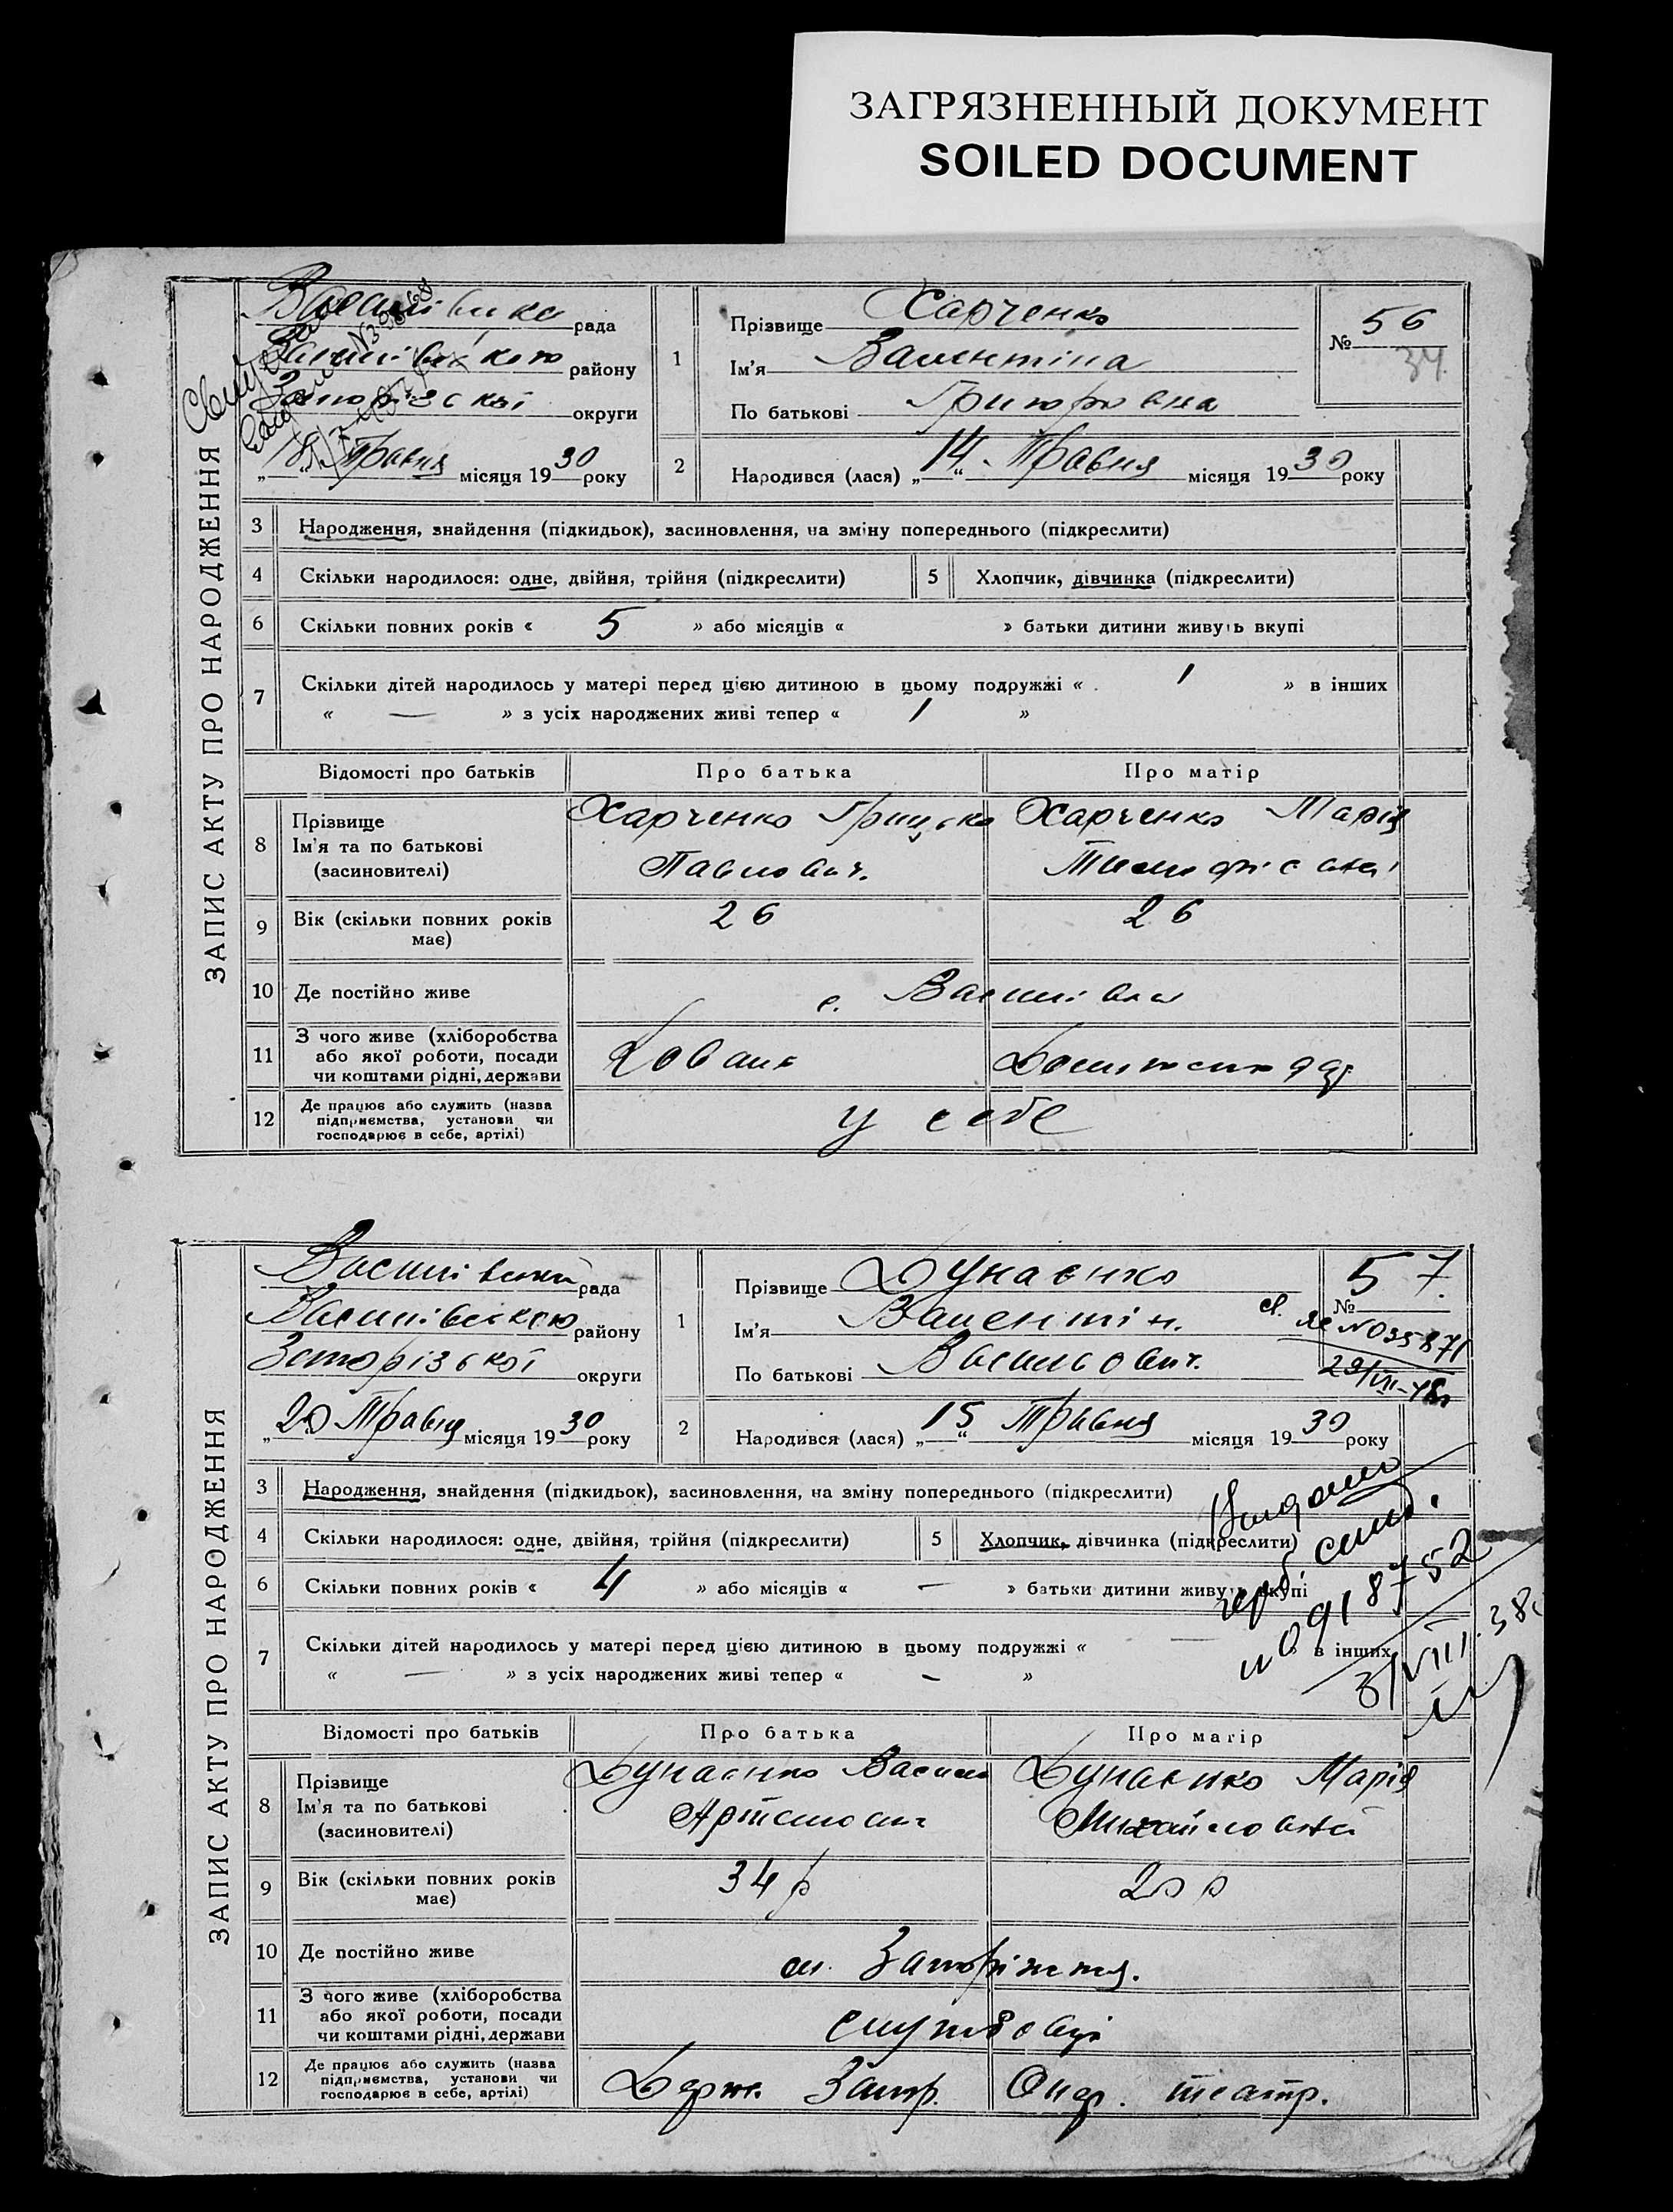 ЗАГРЯЗНЕННЫЙ ДОКУМЕНТ
SOILED DOCUMENT
ЗАПИС АКТУ ПРО НАРОДЖЕННЯ
рада
району
Запорізскої округи
„18“ Травня місяця 1930 року
1 Прізвище Харченко
Ім'я Валентіна
По батькові Григоровна
№ 56
34
2 Народився (лася) „14“ Травня місяця 1930 року
3 Народження, знайдення (підкидьок), засиновлення, на зміну попереднього (підкреслити)
4 Скільки народилося: одне, двійня, трійня (підкреслити) 5 Хлопчик, дівчинка (підкреслити)
6 Скільки повних років « 5 » або місяців « » батьки дитини живуть вкупі
7 Скільки дітей народилось у матері перед цією дитиною в цьому подружжі « 1 » в інших
« — » з усіх народжених живі тепер « 1 »
Відомості про батьків Про батька Про матір
8 Прізвище
Ім'я та по батькові
(засиновителі)
Харченко Грицько Харченко Марія
Павлович. Тимофієвна
9 Вік (скільки повних років має) 26 26
10 Де постійно живе с. Василівка
11 З чого живе (хліборобства
або якої роботи, посади
чи коштами рідні, держави
Коваль
12 Де працює або служить (назва
підприємства, установи чи
господарює в себе, артілі)
у себе
ЗАПИС АКТУ ПРО НАРОДЖЕННЯ
рада
району
округи
„20“ Травня місяця 1930 року
1 Прізвище Дунаєнко
Ім'я Валентін.
По батькові Васильович.
№ 57.
св. ЯЄ N035871
29/VIII-48г
2 Народився (лася) „15“ Травня місяця 1930 року
3 Народження, знайдення (підкидьок), засиновлення, на зміну попереднього (підкреслити)
4 Скільки народилося: одне, двійня, трійня (підкреслити) 5 Хлопчик, дівчинка (підкреслити)
6 Скільки повних років « 4 » або місяців « — » батьки дитини живуть вкупі
7 Скільки дітей народилось у матері перед цією дитиною в цьому подружжі « — » в інших
« — » з усіх народжених живі тепер « – »
3/VIII.38
Відомості про батьків Про батька Про матір
8 Прізвище
Ім'я та по батькові
(засиновителі)
Дунаєнко Василь Дунаєнко Марія
Артемович Михайловна
9 Вік (скільки повних років має) 34 р 20 р
10 Де постійно живе м. Запоріжжя.
11 З чого живе (хліборобства
або якої роботи, посади
чи коштами рідні, держави
службовці
12 Де працює або служить (назва
підприємства, установи чи
господарює в себе, артілі)
Держ. театр.